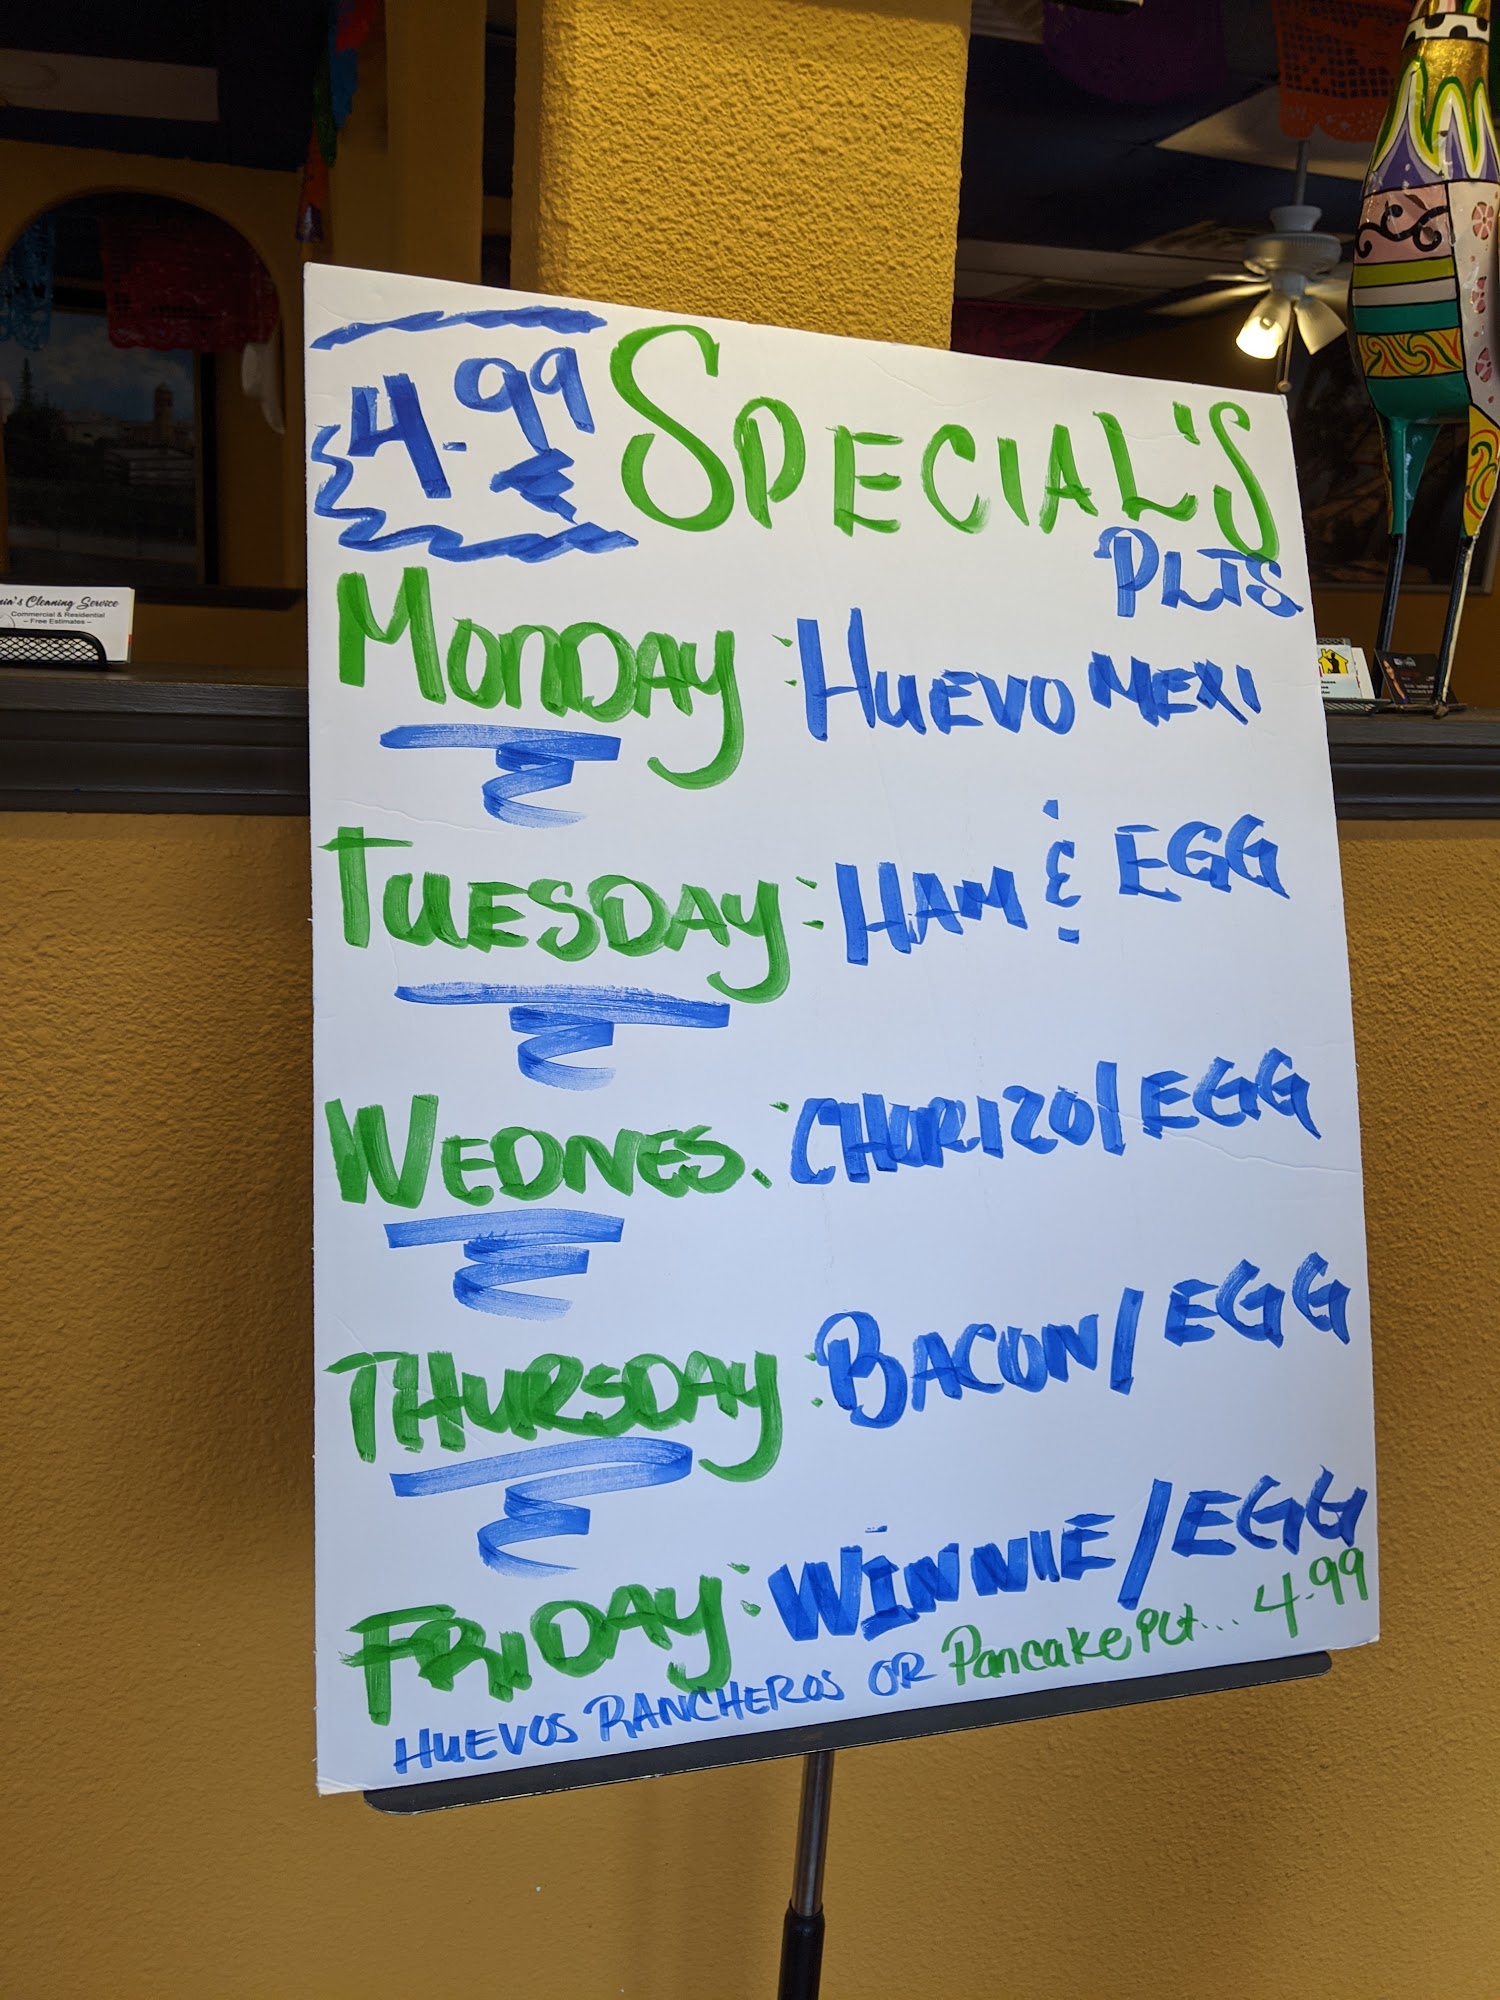 4.99 SPECIAL'S
PLTS
MONDAY: HUEVO MEXI
TUESDAY: HAM & EGG
WEDNES. : CHORIZO/EGG
THURSDAY: BACON/EGG
FRIDAY: WINNIE/EGG
HUEVOS RANCHEROS OR Pancake PLt... 4.99
Cleaning Service
Commercial & Residential
– Free Estimates –